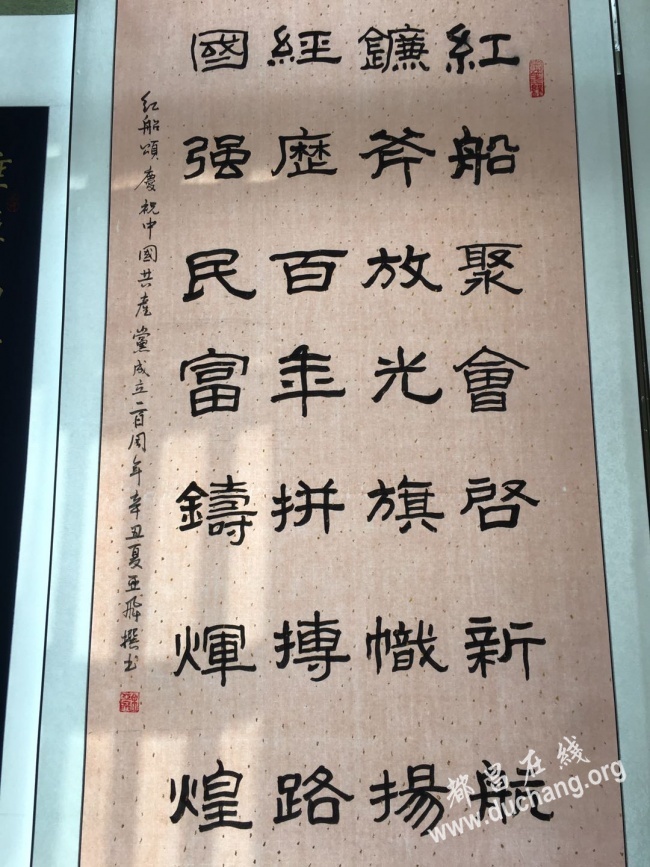 紅船聚會啓新航
鐮斧放光旗幟揚
經歷百年拼搏路
國强民富鑄煇煌
紅船頌慶祝中國共產黨成立一百周年辛丑夏亚飛撰书
都昌在线
www.duchang.org